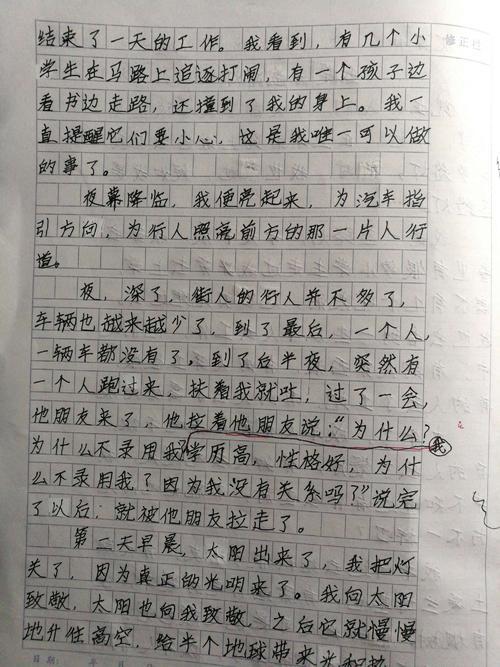 修正栏
结束了一天的工作。我看到，有几个小
学生在马路上追逐打闹，有一个孩子边
看书边走路，还撞到了我的身上。我一
直提醒它们要小心，这是我唯一可以做
的事了。
夜幕降临，我便亮起来，为汽车指
引方向，为行人照亮前方的那一片人行
道。
夜，深了，街人的行人并不多了，
车辆也越来越少了，到了最后，一个人，
一辆车都没有了，到了后半夜，突然有
一个人跑过来，扶着我就吐，过了一会，
他朋友来了，他拉着他朋友说："为什么？
为什么不录用我学历高，性格好，为什
我
么不录用我？因为我没有关系吗？"说完
了以后，就被他朋友拉走了。
第二天早晨，太阳出来了，我把灯
关了，因为真正的光明来了。我向太阳
致敬，太阳也向我致敬，之后它就慢慢
地升往高空，给半个地球带来光和热